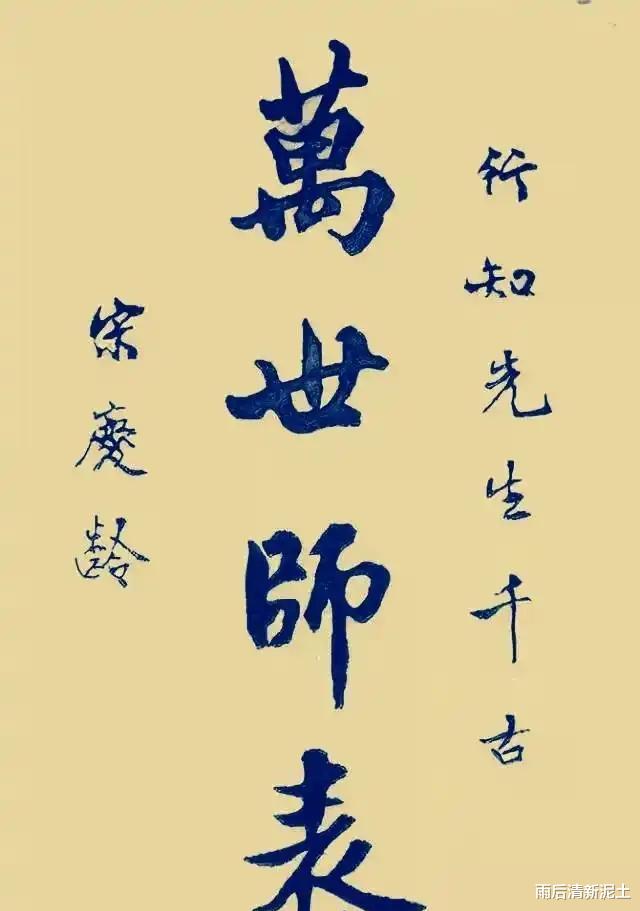 行知先生千古
萬世師表
宋慶齡
雨后清新泥土